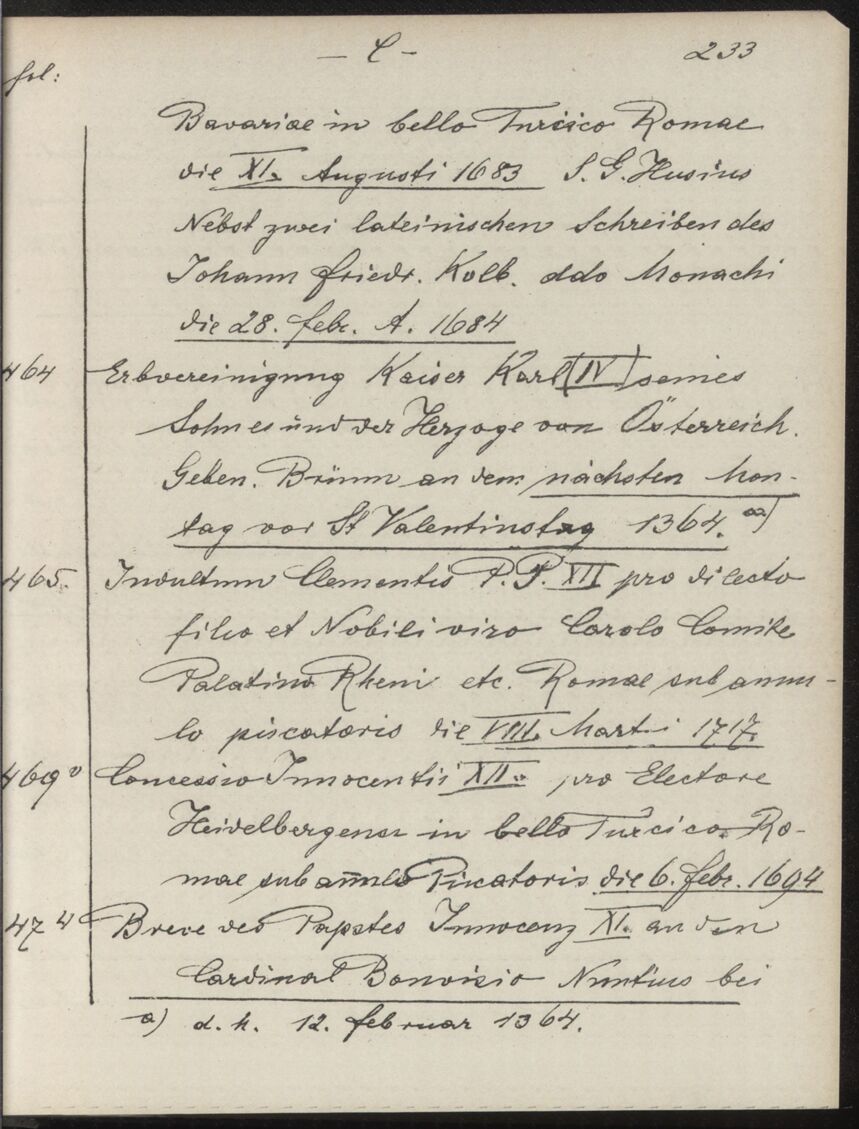 – C – 233
fol:
Bavariae in bello Turcico Romae
die XI. Augusti 1683 S. G. Husius
Nebst zwei lateinischen Schreiben des
Johann Friedr. Kolb. ddo Monachi
die 28. Febr. A. 1684
464 Erbvereinigung Kaiser Karl (IV) seines
Sohnes und der Herzoge von Österreich.
Geben. Brünn an dem nächsten Mon-
tag vor St Valentinstag 1364. a)
465. Indultum Clementis P.P. XII pro dilecto
filio et Nobili viro Carolo Comite
Palatino Rheni etc. Romae sub annu-
lo piscatoris die VIII. Marti 1717.
469v Concessio Innocentii XII. pro Electore
Heidelbergensi in bello Turcico. Ro-
mae sub annulo Piscatoris die 6. Febr. 1694
474 Breve des Papstes Innocenz XI. an den
Cardinal Bonvisio Nuntius bei
a) d. h. 12. Februar 1364.